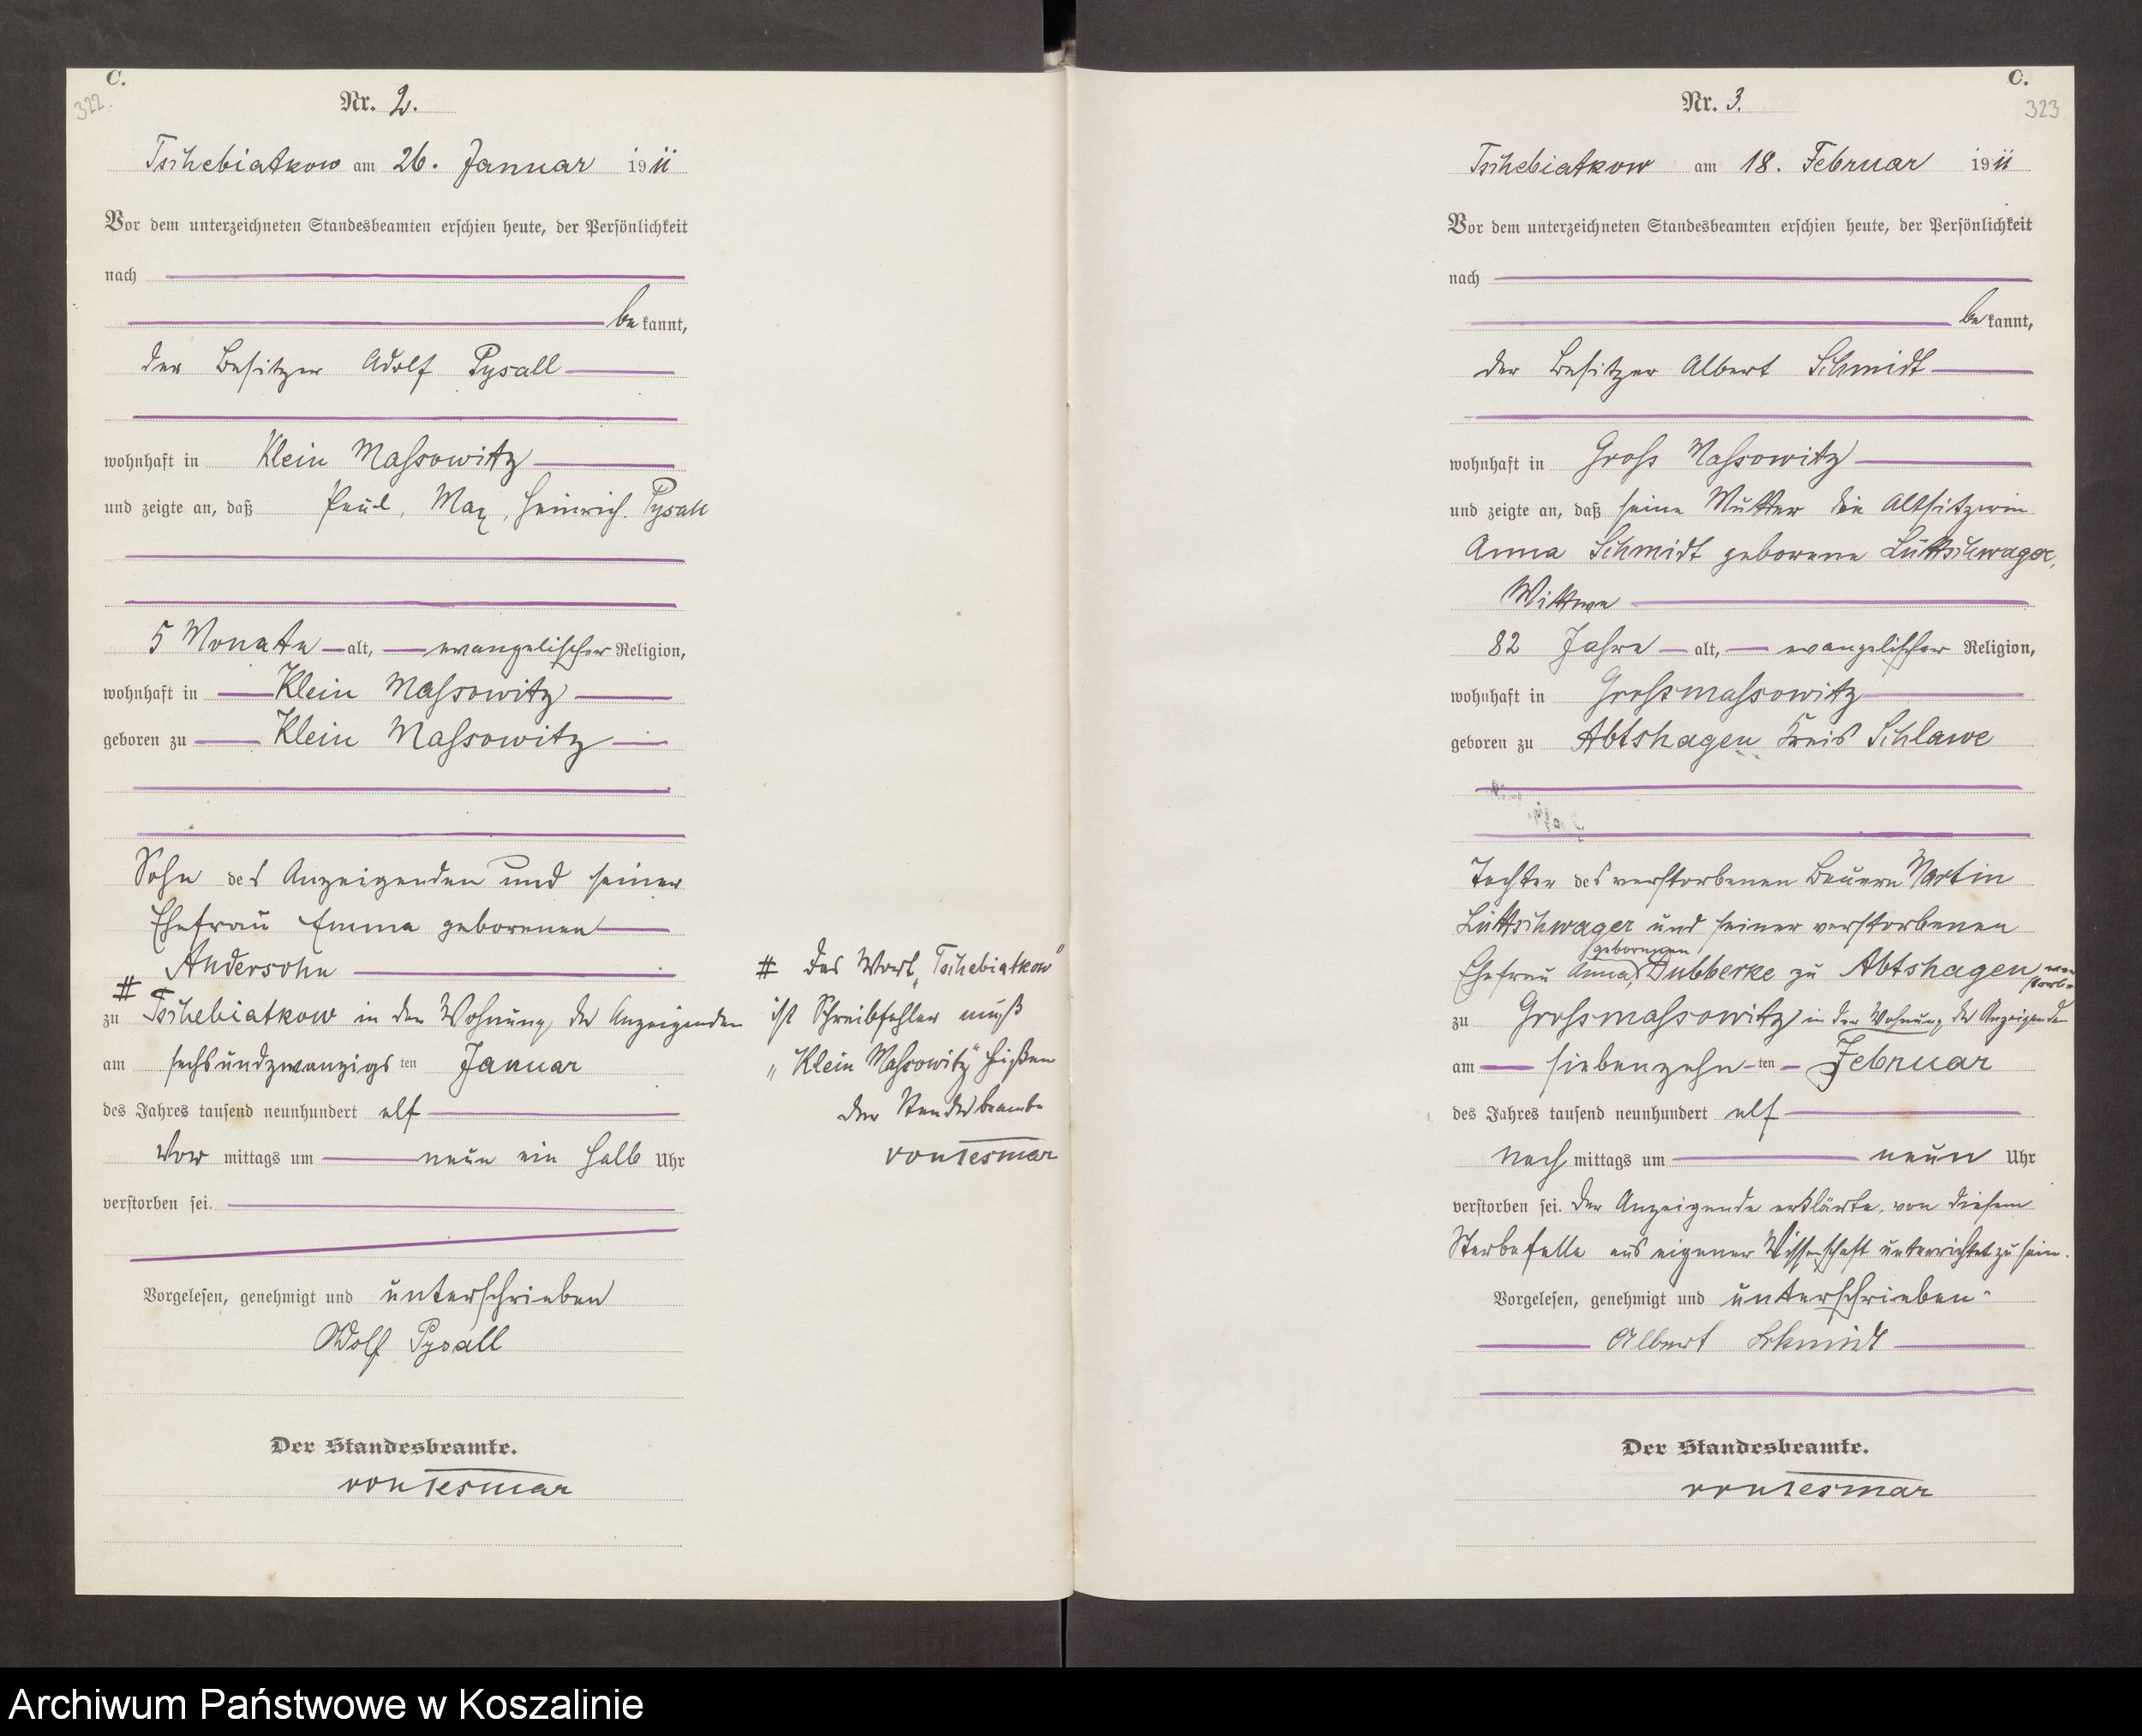 C.
322.
Nr. 2.
Tschebiatkow am 26. Januar 1911
Vor dem unterzeichneten Standesbeamten erschien heute, der Persönlichkeit
nach
be kannt,
der Besitzer Adolf Pysall
wohnhaft in Klein Massowitz
und zeigte an, daß Paul, Max, Heinrich Pysall
5 Monate alt, evangelischer Religion,
wohnhaft in Klein Massowitz
geboren zu Klein Massowitz
Sohn des Anzeigenden und seiner
Ehefrau Emma geborenen
Andersohn
#
zu Tschebiatkow in der Wohnung des Anzeigenden
am sechsundzwanzigs ten Januar
des Jahres tausend neunhundert elf
Vor mittags um neun ein halb Uhr
verstorben sei.
Vorgelesen, genehmigt und unterschrieben
Adolf Pysall
Der Standesbeamte.
von Tesmar
# das Wort „Tschebiatkow"
ist Schreibfehler muß
„Klein Massowitz" heißen
der Standesbeamte
von Tesmar
C.
323
Nr. 3.
Tschebiatkow am 18. Februar 1911
Vor dem unterzeichneten Standesbeamten erschien heute, der Persönlichkeit
nach
be kannt,
der Besitzer Albert Schmidt
wohnhaft in Gross Massowitz
und zeigte an, daß seine Mutter die Altsitzerin
Anna Schmidt geborene Lüttschwager,
Wittwe
82 Jahre alt, evangelischer Religion,
wohnhaft in Grossmassowitz
geboren zu Abtshagen Kreis Schlawe
Tochter des verstorbenen Bauern Martin
Lüttschwager und seiner verstorbenen
geborenen
Ehefrau Anna, Dubberke zu Abtshagen
zu Grossmassowitz in der Wohnung des Anzeigenden
am siebenzehn ten Februar
des Jahres tausend neunhundert elf
nach mittags um neun Uhr
verstorben sei. Der Anzeigende erklärte, von diesem
Sterbefalle aus eigener Wissenschaft unterrichtet zu sein.
Vorgelesen, genehmigt und unterschrieben
Albert Schmidt
Der Standesbeamte.
von Tesmar
Archiwum Państwowe w Koszalinie